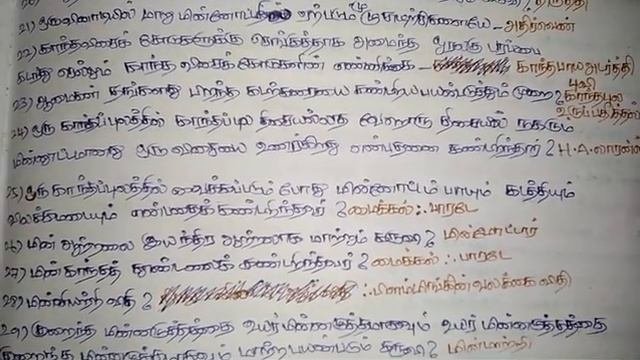 21) ஒரு வினாடியில் மாறு மின்னோட்டத்தில் ஏற்படும் முழு சுற்றுகளையே - அதிர்வெண்
22) காந்தவிசைக் கோடுகளுக்கு செங்குத்தாக அமைந்த ஓரலகு பரப்பை
கடந்து செல்லும் காந்த விசைக் கோடுகளின் எண்ணிக்கை - காந்தபாய அடர்த்தி
23) ஆமைகள் தங்களது பிறந்த கடற்கரையை கண்டறிய பயன்படுத்தும் முறை? புவி காந்தபுல
24) ஒரு காந்தப்புலத்தின் காந்தப்புல திசையல்லாத வேறொரு திசையில் நகரும்
மின்னூட்டமானது ஒரு விசையை உணர்கிறது என்பதனை கண்டறிந்தார்? H.A. லாரன்ஸ்
25) ஒரு காந்தப்புலத்தில் வைக்கப்படும் போது மின்னோட்டம் பாயும் கடத்தியும்
விலக்கமடையும் என்பதைக் கண்டறிந்தவர்? மைக்கல் ஃபாரடே
26) மின் ஆற்றலை இயந்திர ஆற்றலாக மாற்றும் கருவி? மின்மோட்டார்
27) மின் காந்தத் தூண்டலைக் கண்டறிந்தவர்? மைக்கல் ஃபாரடே
28) மின்னியற்றி விதி? ஃபிளம்மிங்கின் வலக்கை விதி
29) குறைந்த மின்னழுத்தத்தை உயர் மின்னழுத்தமாகவும் உயர் மின்னழுத்தத்தை
குறைந்த மின்னழுத்தமாகவும் மாற்ற பயன்படும் கருவி? மின்மாற்றி